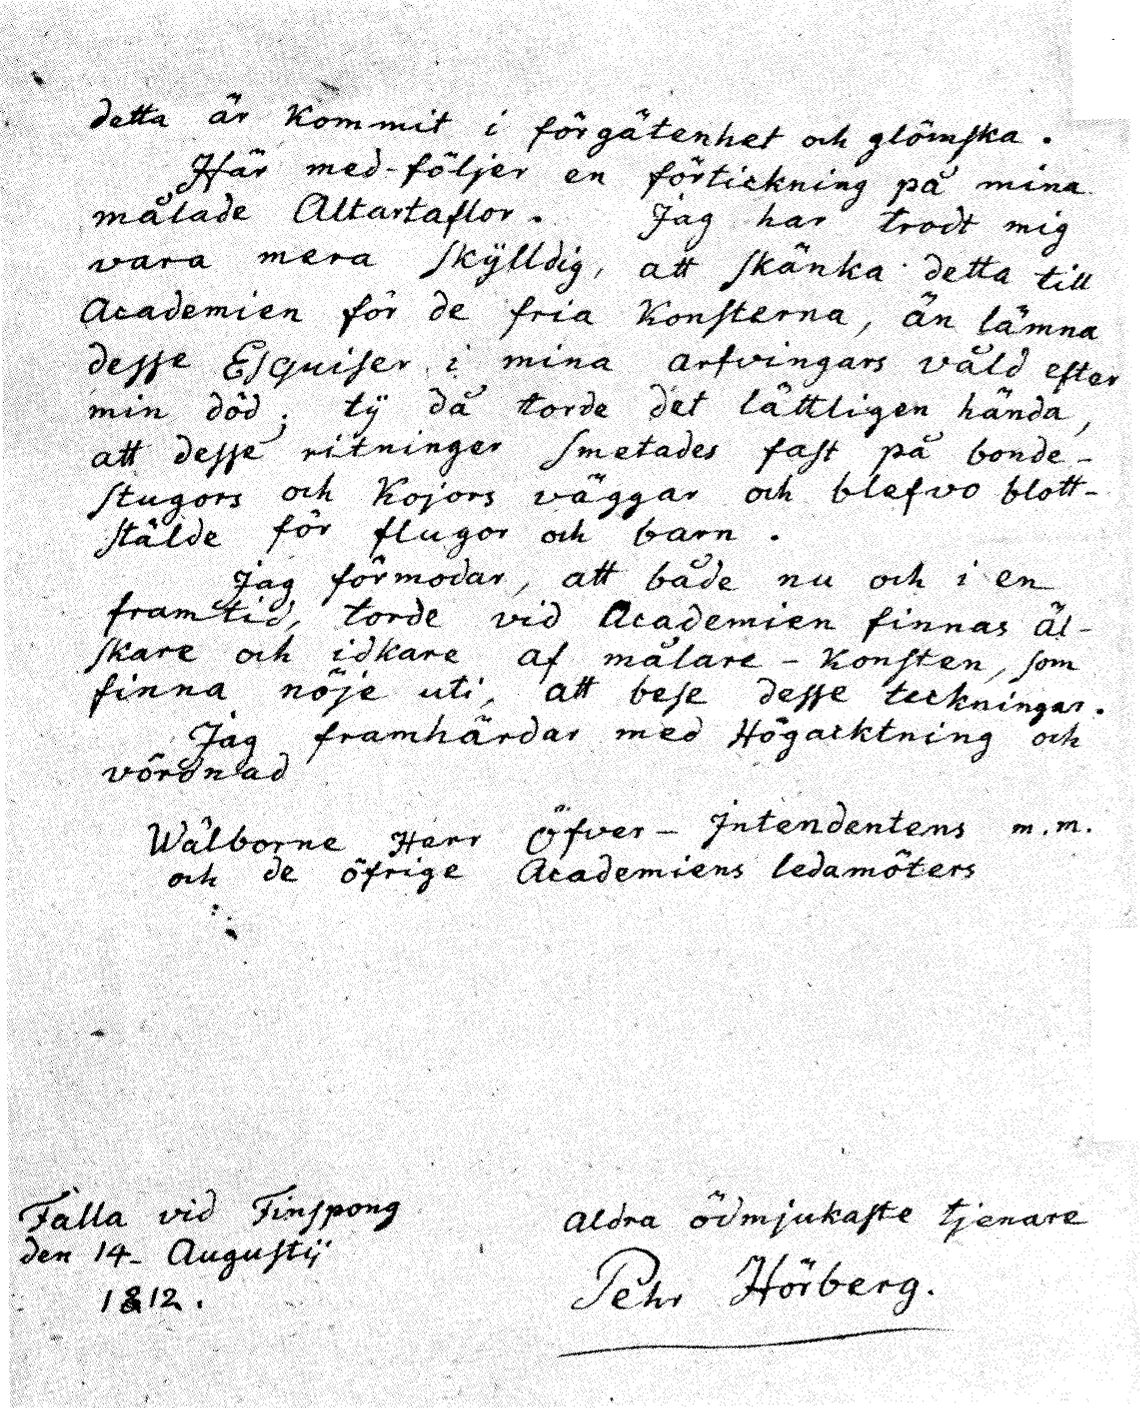 detta är Kommit i förgätenhet och glömska.
Här med-följer en förtickning på mina
målade Altartaflor. Jag har trodt mig
vara mera skÿlldig, att skänka detta till
Academien för de fria Konsterna, än lämna
desse Esquiser i mina arfvingars våld efter
min död; tÿ då torde det lättligen hända,
att desse ritninger smetades fast på bonde-
stugors och Kojors väggar och blefvo blott-
stälde för flugor och barn.
Jag förmodar, att både nu och i en
framtid, torde vid Academien finnas äl-
skare och idkare af målare-Konsten, som
finna nöje uti, att bese desse teckningar.
Jag framhärdar med Högacktning och
vördnad
Wälborne Herr Öfver-Intendentens m.m.
och de öfrige Academiens ledamöters
Falla vid Finspong
den 14 Augustij
1812.
aldra ödmjukaste tjenare
Pehr Hörberg.